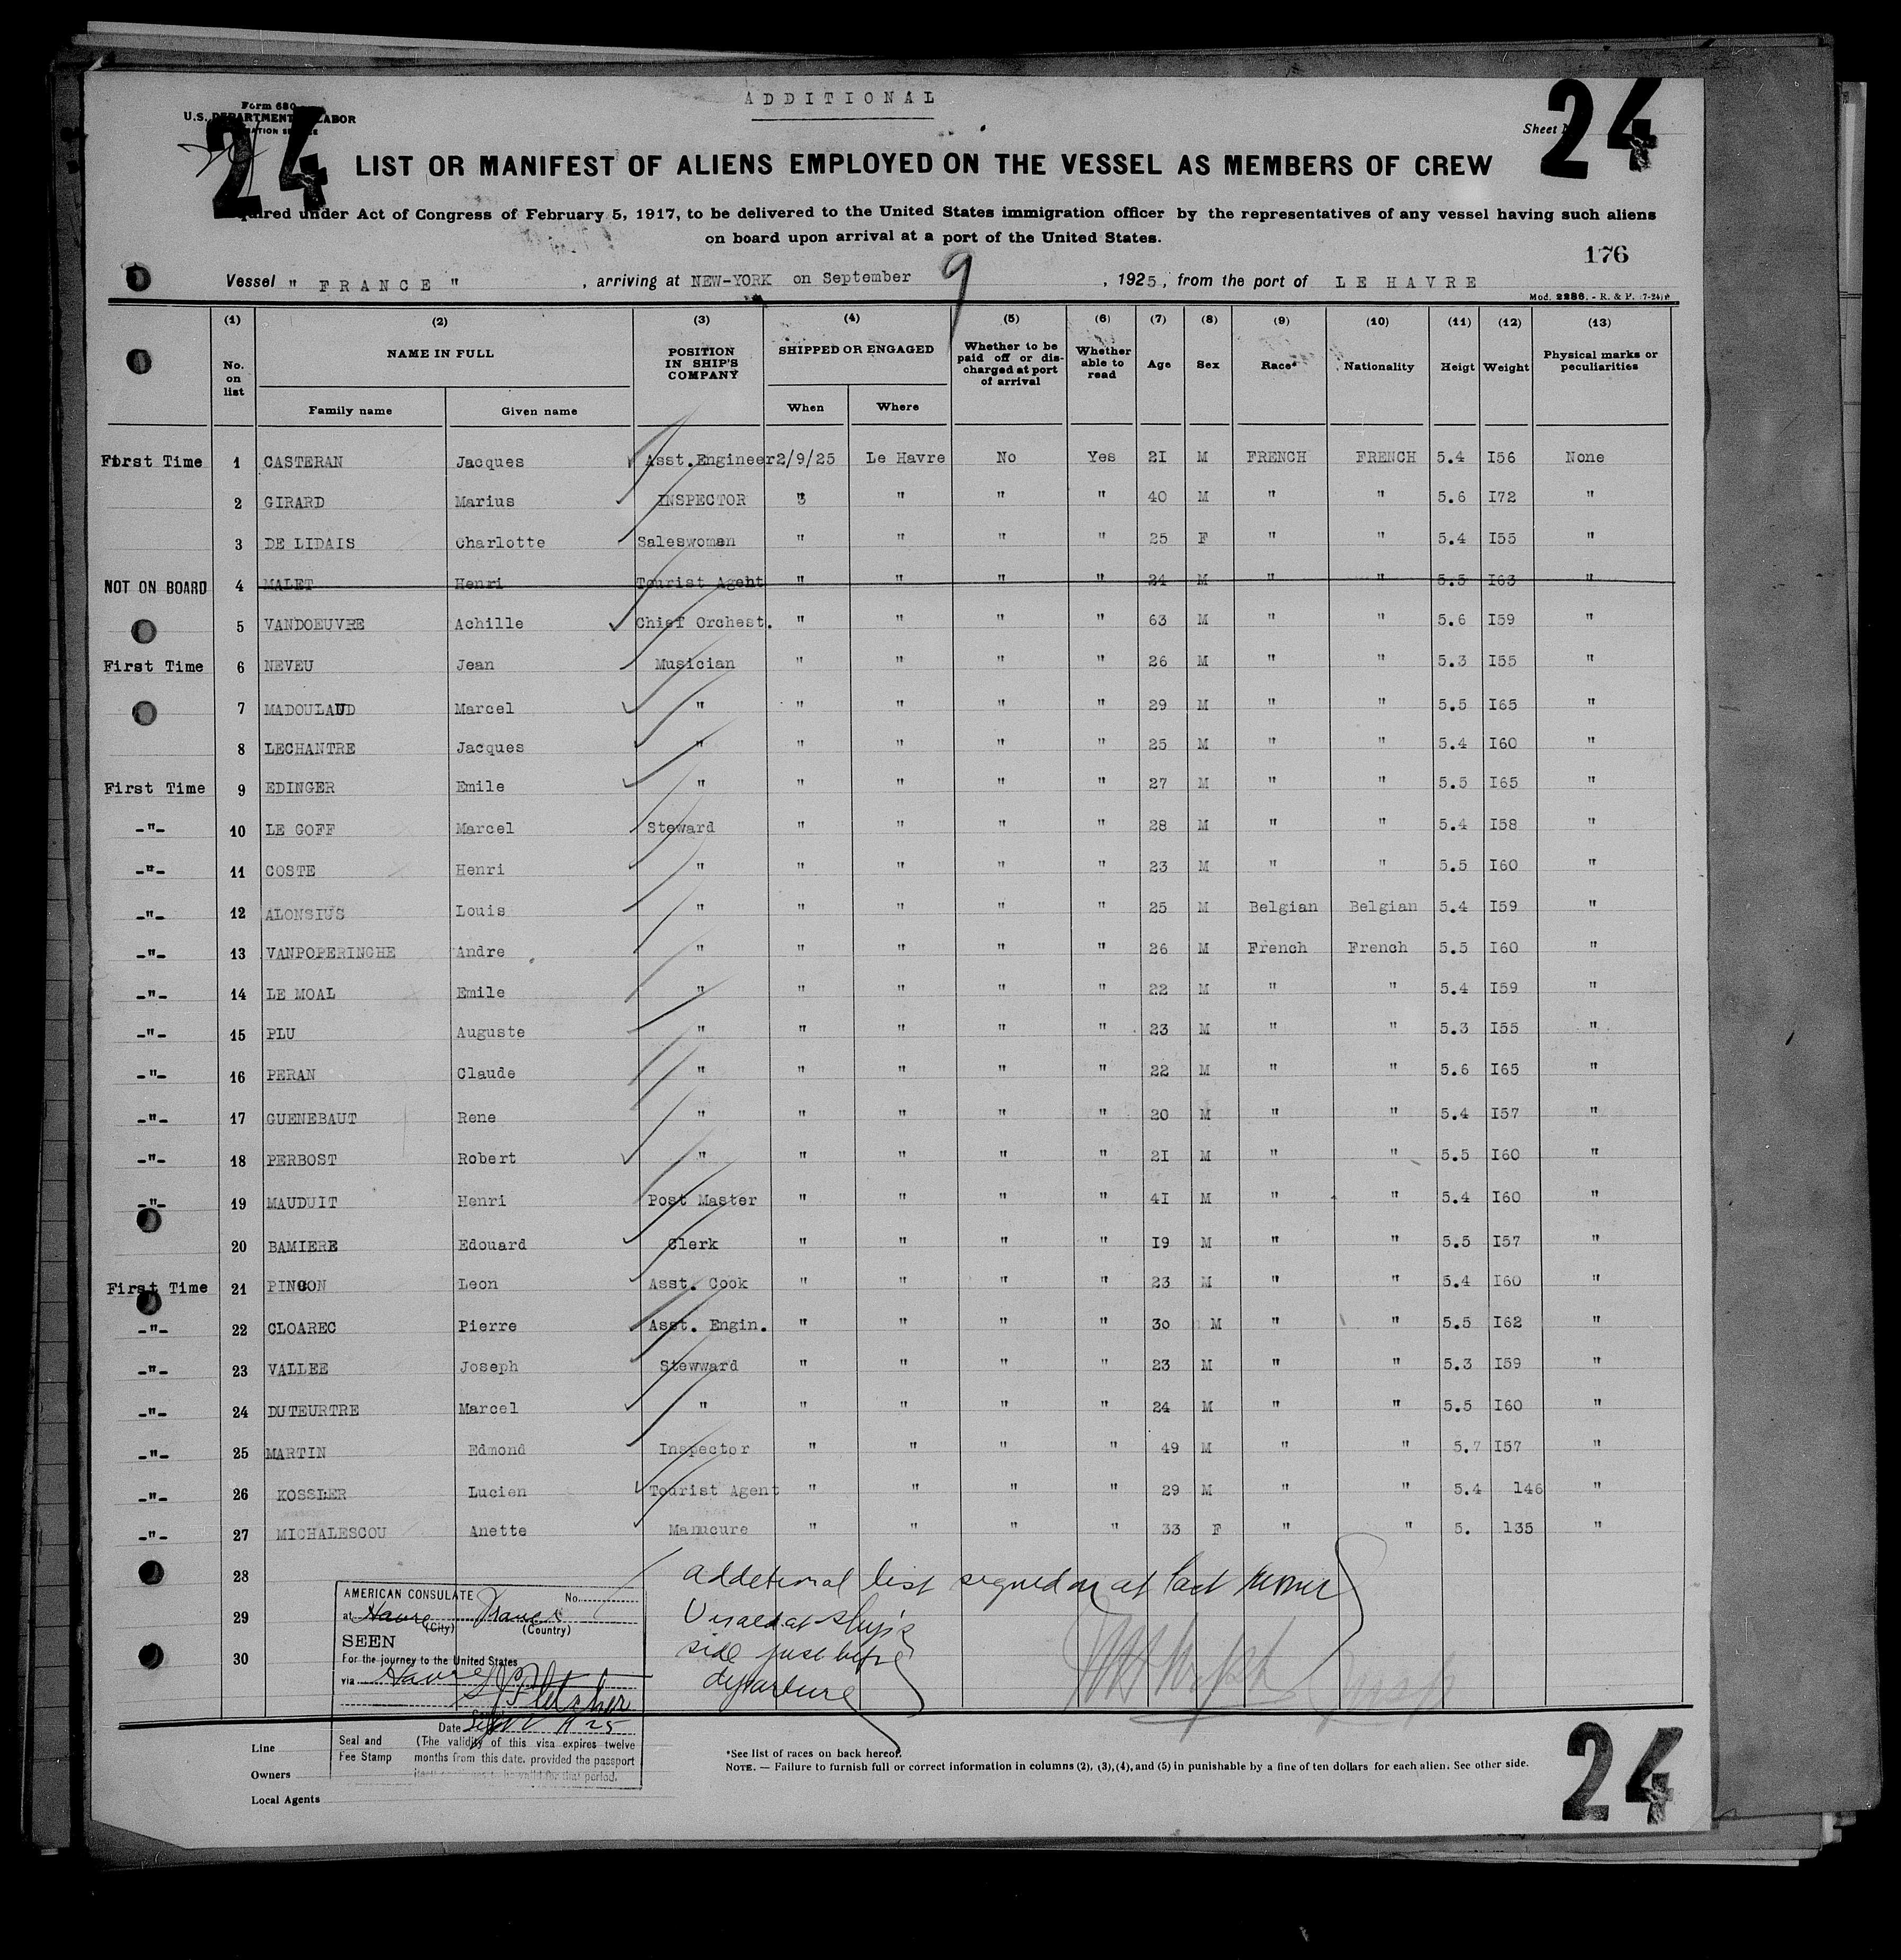 ADDITIONAL
Form 680
U.S. DEPARTMENT LABOR
24
Sheet
24
LIST OR MANIFEST OF ALIENS EMPLOYED ON THE VESSEL AS MEMBERS OF CREW
quired under Act of Congress of February 5, 1917, to be delivered to the United States immigration officer by the representatives of any vessel having such aliens
on board upon arrival at a port of the United States.
176
Vessel " FRANCE " , arriving at NEW-YORK on September 9 , 1925, from the port of LE HAVRE
Mod. 2286. - R. & P.
(1) (2) (3) (4) (5) (6) (7) (8) (9) (10) (11) (12) (13)
No. on list NAME IN FULL POSITION IN SHIP'S COMPANY SHIPPED OR ENGAGED Whether to be paid off or discharged at port of arrival Whether able to read Age Sex Race* Nationality Heigt Weight Physical marks or peculiarities
Family name Given name When Where
First Time 1 CASTERAN Jacques Asst.Engineer 2/9/25 Le Havre No Yes 2I M FRENCH FRENCH 5.4 I56 None
2 GIRARD Marius INSPECTOR " " " " 40 M " " 5.6 I72 "
3 DE LIDAIS Charlotte Saleswoman " " " " 25 F " " 5.4 I55 "
NOT ON BOARD 4 MALET Henri Tourist Agent " " " " 24 M " " 5.5 I63 "
5 VANDOEUVRE Achille Chief Orchest. " " " " 63 M " " 5.6 I59 "
First Time 6 NEVEU Jean Musician " " " " 26 M " " 5.3 I55 "
7 MADOULAUD Marcel " " " " " 29 M " " 5.5 I65 "
8 LECHANTRE Jacques " " " " " 25 M " " 5.4 I60 "
First Time 9 EDINGER Emile " " " " " 27 M " " 5.5 I65 "
-"- 10 LE GOFF Marcel Steward " " " " 28 M " " 5.4 I58 "
-"- 11 COSTE Henri " " " " " 23 M " " 5.5 I60 "
-"- 12 ALONSIUS Louis " " " " " 25 M Belgian Belgian 5.4 I59 "
-"- 13 VANPOPERINGHE Andre " " " " " 26 M French French 5.5 I60 "
-"- 14 LE MOAL Emile " " " " " 22 M " " 5.4 I59 "
-"- 15 PLU Auguste " " " " " 23 M " " 5.3 I55 "
-"- 16 PERAN Claude " " " " " 22 M " " 5.6 I65 "
-"- 17 GUENEBAUT Rene " " " " " 20 M " " 5.4 I57 "
-"- 18 PERBOST Robert " " " " " 2I M " " 5.5 I60 "
-"- 19 MAUDUIT Henri Post Master " " " " 4I M " " 5.4 I60 "
20 BAMIERE Edouard Clerk " " " " I9 M " " 5.5 I57 "
First Time 21 PINCON Leon Asst. Cook " " " " 23 M " " 5.4 I60 "
-"- 22 CLOAREC Pierre Asst. Engin. " " " " 30 M " " 5.5 I62 "
-"- 23 VALLEE Joseph Stewward " " " " 23 M " " 5.3 I59 "
-"- 24 DUTEURTRE Marcel " " " " " 24 M " " 5.5 I60 "
-"- 25 MARTIN Edmond Inspector " " " " 49 M " " 5.7 I57 "
-"- 26 KOSSLER Lucien Tourist Agent " " " " 29 M " " 5.4 146 "
-"- 27 MICHALESCOU Anette Manucure " " " " 33 F " " 5. 135 "
28
29
30
additional list signed on at last
Visaed at ship's
side just before
departure
AMERICAN CONSULATE No.
at Havre France
(City) (Country)
SEEN
For the journey to the United States
via Havre
Fletcher
Date Sept 2 1925
Seal and Fee Stamp
(The validity of this visa expires twelve
months from this date, provided the passport
for that period.
Line
Owners
Local Agents
*See list of races on back hereof.
NOTE. — Failure to furnish full or correct information in columns (2), (3), (4), and (5) in punishable by a fine of ten dollars for each alien. See other side.
24